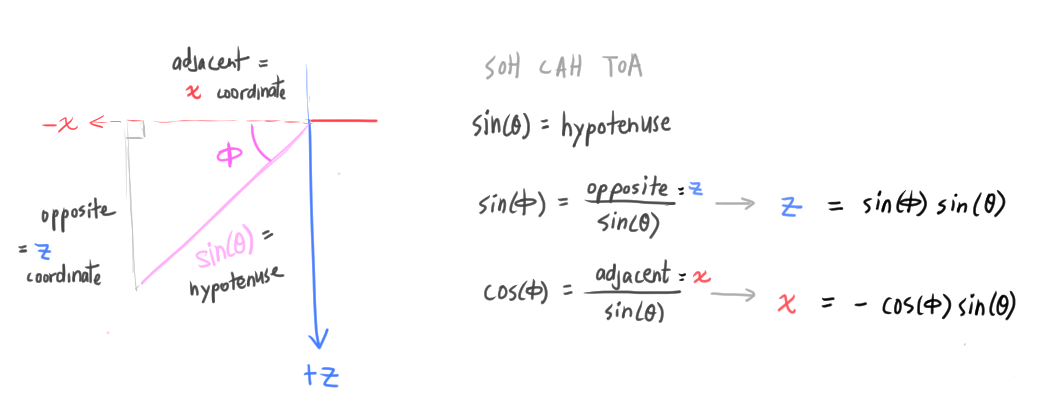 adjacent =
x coordinate
-x
ϕ
opposite
= z
coordinate
sin(θ) =
hypotenuse
+z
SOH CAH TOA
sin(θ) = hypotenuse
sin(ϕ) = opposite = z / sin(θ) → z = sin(ϕ) sin(θ)
cos(ϕ) = adjacent = x / sin(θ) → x = - cos(ϕ) sin(θ)